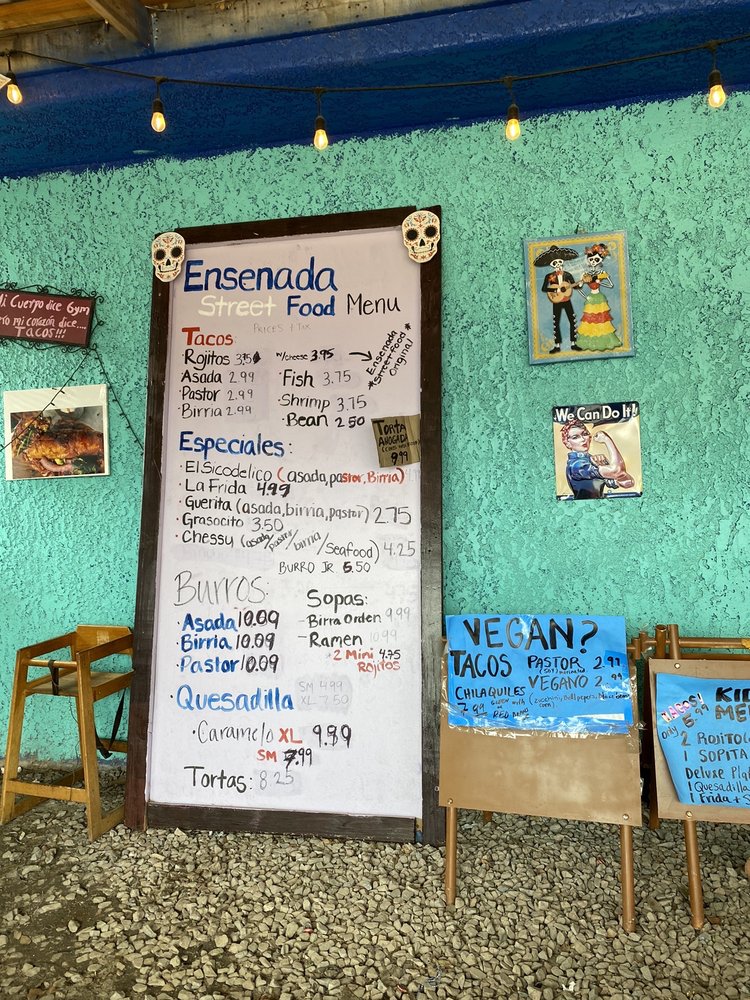 Mi Cuerpo dice Gym
ero mi corazón dice....
TACOS!!!
Ensenada
Street Food Menu
PRICES + TAX
Tacos
· Rojitos
w/cheese 3.95
· Asada 2.99
· Pastor 2.99
· Birria 2.99
· Fish 3.75
· Shrimp 3.75
· Bean 2.50
Ensenada
*Street Food*
Original
TORTA
AHOGADA
9.99
Especiales:
· El Sicodelico (asada, pastor, Birria)
· La Frida 4.99
· Guerita (asada, birria, pastor) 2.75
· Grasocito 3.50
· Chessy (asada/pastor/birria/Seafood) 4.25
BURRO JR 6.50
Burros:
· Asada 10.09
· Birria 10.09
· Pastor 10.09
Sopas:
- Birra Orden 9.99
- Ramen 10.99
+ 2 Mini 4.75
Rojitos
· Quesadilla
SM 4.99
XL 7.50
· Caramelo XL 9.89
SM 7.99
Tortas: 8.25
We Can Do It!
VEGAN?
TACOS PASTOR 2.99
VEGANO 2.99
CHILAQUILES
7.99
RED
KI
ME
only 5.99
2 ROJITO
1 SOPITA
Deluxe Pla
1 Quesadilla
1 Frida + S